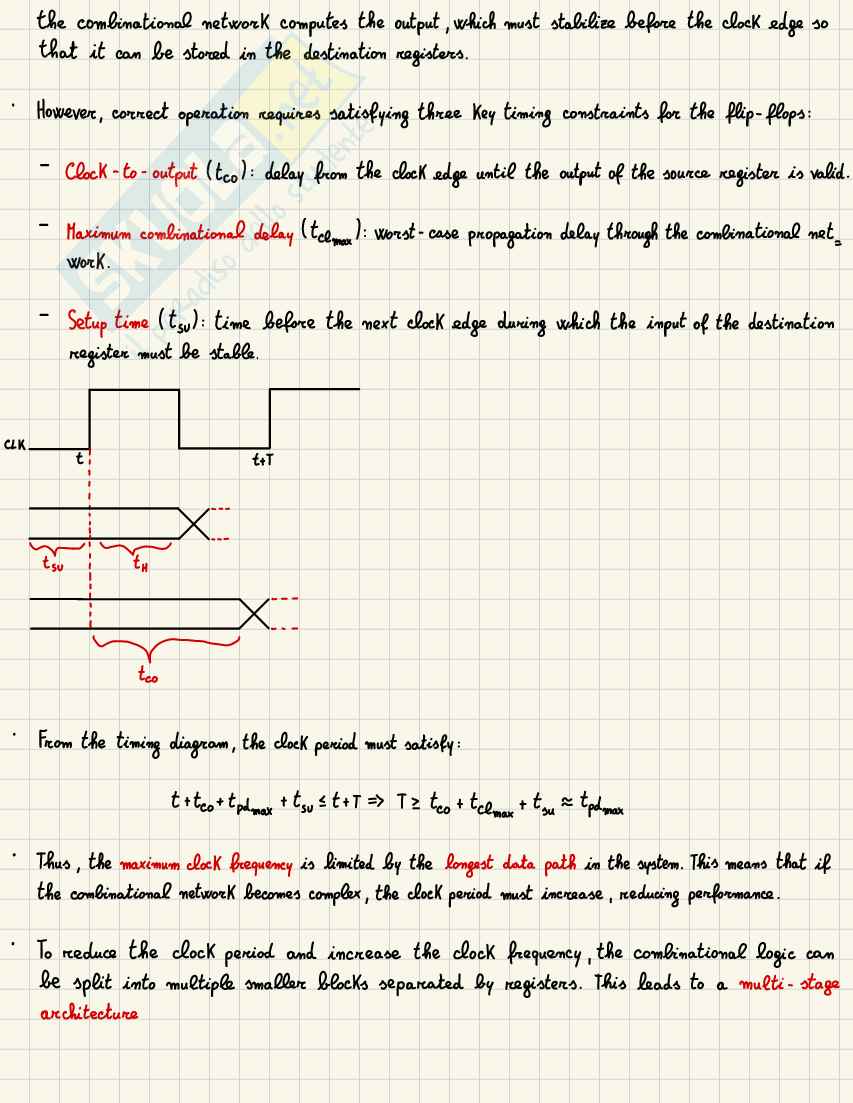 the combinational network computes the output, which must stabilize before the clock edge so
that it can be stored in the destination registers.
· However, correct operation requires satisfying three key timing constraints for the flip-flops:
- Clock-to-output (tco): delay from the clock edge until the output of the source register is valid.
- Maximum combinational delay (tclmax): worst-case propagation delay through the combinational net=
work.
- Setup time (tsu): time before the next clock edge during which the input of the destination
register must be stable.
CLK
t
t+T
tsu
tH
tco
· From the timing diagram, the clock period must satisfy:
t + tco + tpdmax + tsu ≤ t+T ⇒ T ≥ tco + tclmax + tsu ≈ tpdmax
· Thus, the maximum clock frequency is limited by the longest data path in the system. This means that if
the combinational network becomes complex, the clock period must increase, reducing performance.
· To reduce the clock period and increase the clock frequency, the combinational logic can
be split into multiple smaller blocks separated by registers. This leads to a multi-stage
architecture
SKUOLA.net